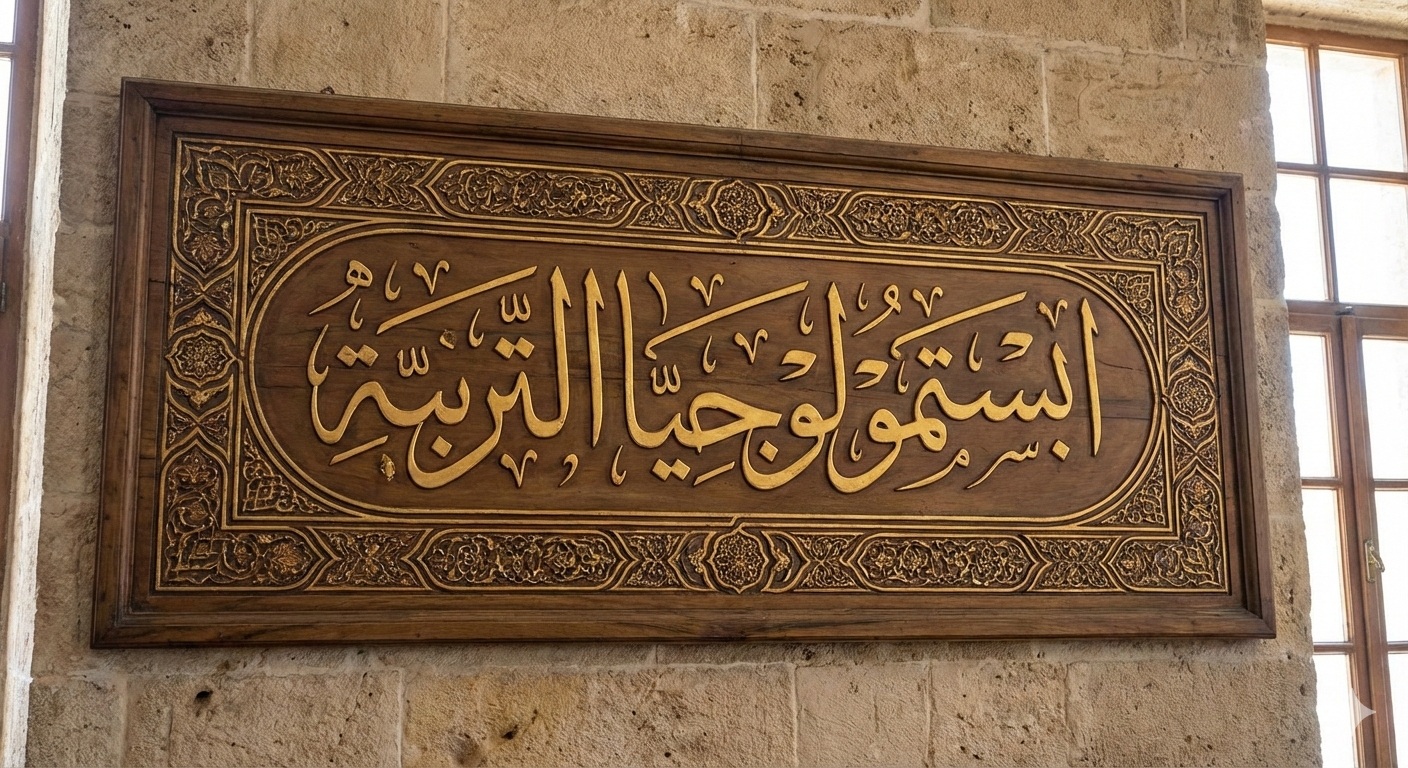 ابستمولوجيا التربية